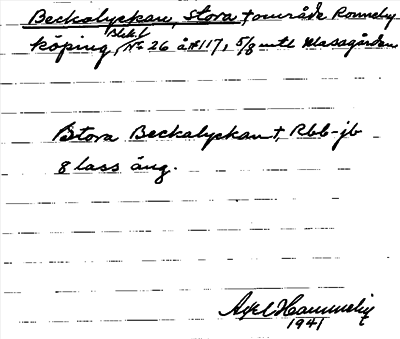 Beckalyckan, stora † område Ronneby
köping, Blek. l. No 26 å # 117, 5/8 mtl Klasagården
Stora Beckalyckan †, Rbb-jb
8 lass äng.
Axel Hammelin
1941